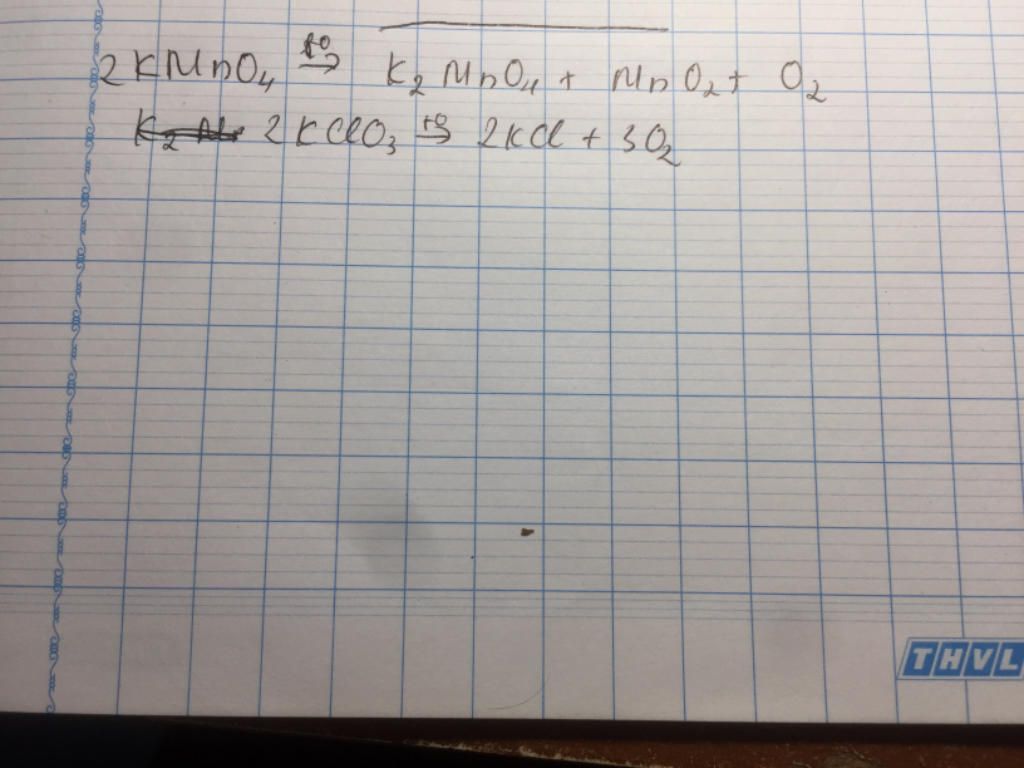 2KMnO₄ t° → K₂MnO₄ + MnO₂ + O₂
2KClO₃ t° → 2KCl + 3O₂
THVL